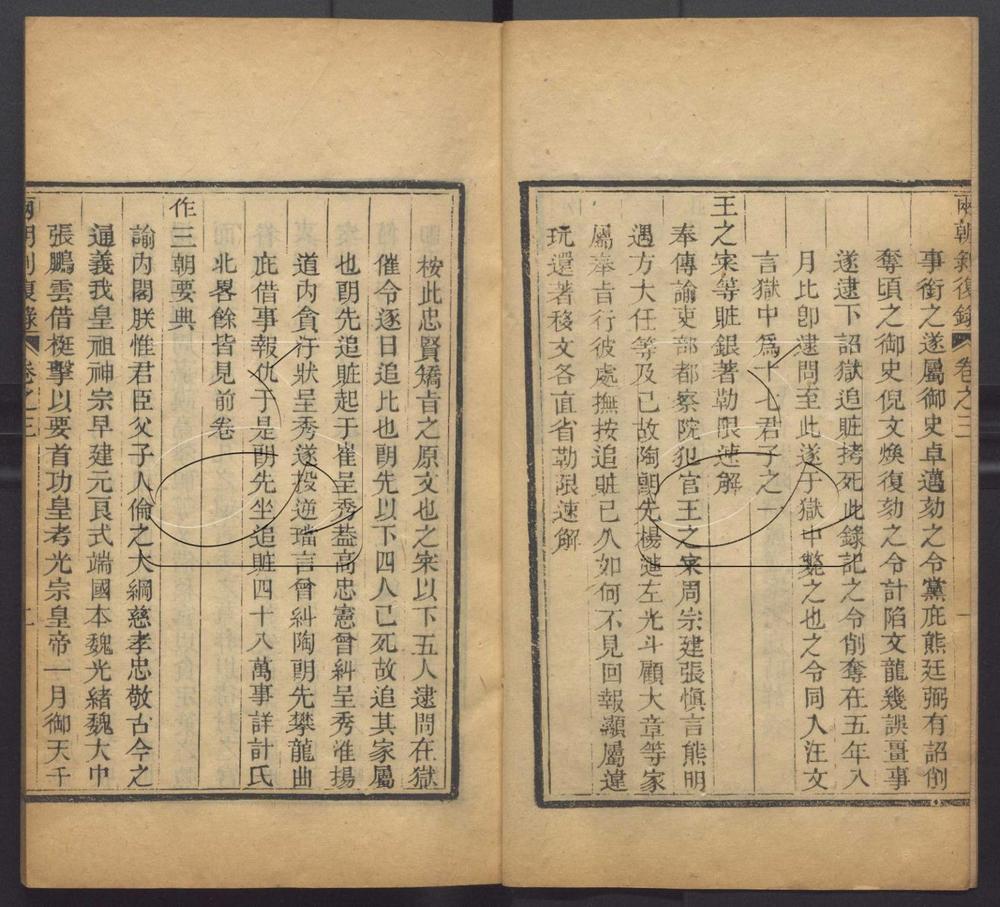 兩朝剝復錄 卷之三 一
事銜之遂屬御史卓邁劾之令黨庇熊廷弼有詔削
奪頃之御史倪文煥復劾之令計陷文龍幾誤畺事
遂逮下詔獄追賍拷死此錄記之令削奪在五年八
月比卽逮問至此遂于獄中斃之也之令同人汪文
言獄中爲十七君子之一
王之寀等賍銀著勒限速解
奉傳諭吏部都察院犯官王之寀周宗建張愼言熊明
遇方大任等及已故陶朗先楊漣左光斗顧大章等家
屬奉旨行彼處撫按追賍已久如何不見回報顯屬違
玩還著移文各直省勒限速解
按此忠賢矯旨之原文也之寀以下五人逮問在獄
催令逐日追比也朗先以下四人已死故追其家屬
也朗先追賍起于崔呈秀葢高忠憲曾糾呈秀淮揚
道內貪汙狀呈秀遂投逆璫言曾糾陶朗先攀龍曲
庇借事報仇于是朗先坐追賍四十八萬事詳計氏
北畧餘皆見前卷
作三朝要典
諭內閣朕惟君臣父子人倫之大綱慈孝忠敬古今之
通義我皇祖神宗早建元良式端國本魏光緒魏大中
張鵬雲借梃擊以要首功皇考光宗皇帝一月御天千
兩朝剝復錄 卷之三 二